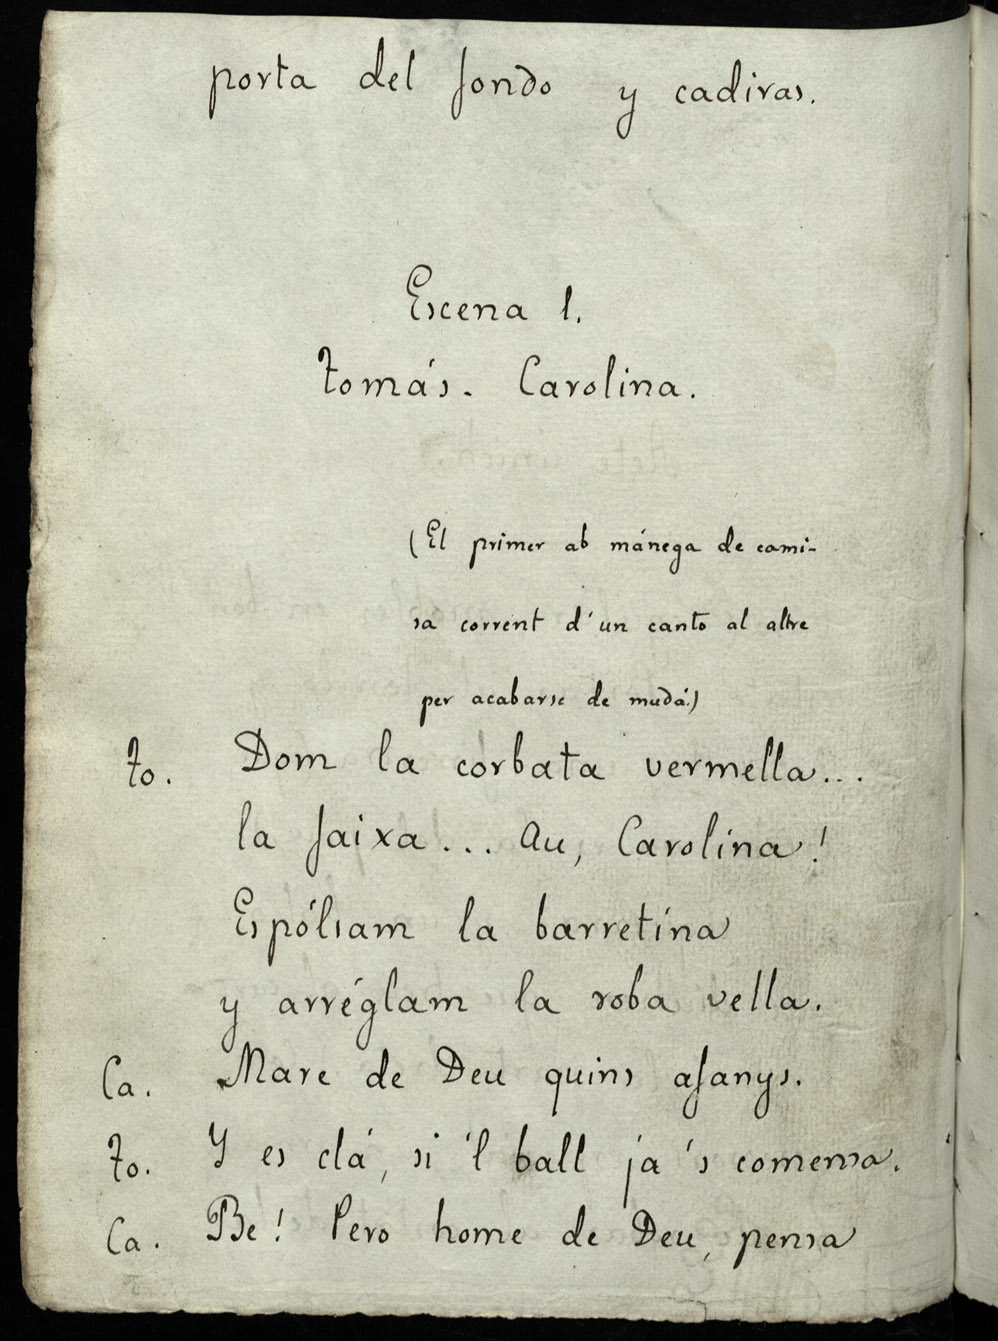 porta del fondo y cadiras.
Escena 1.
Tomás. Carolina.
(El primer ab mánega de cami-
sa corrent d'un canto al altre
per acabarse de mudá.)
To. Dom la corbata vermella...
la faixa... Au, Carolina!
Espólsam la barretína
y arréglam la roba vella.
Ca. Mare de Deu quins afanys.
To. Y es clá, si 'l ball ja 's comensa.
Ca. Be! Pero home de Deu, pensa